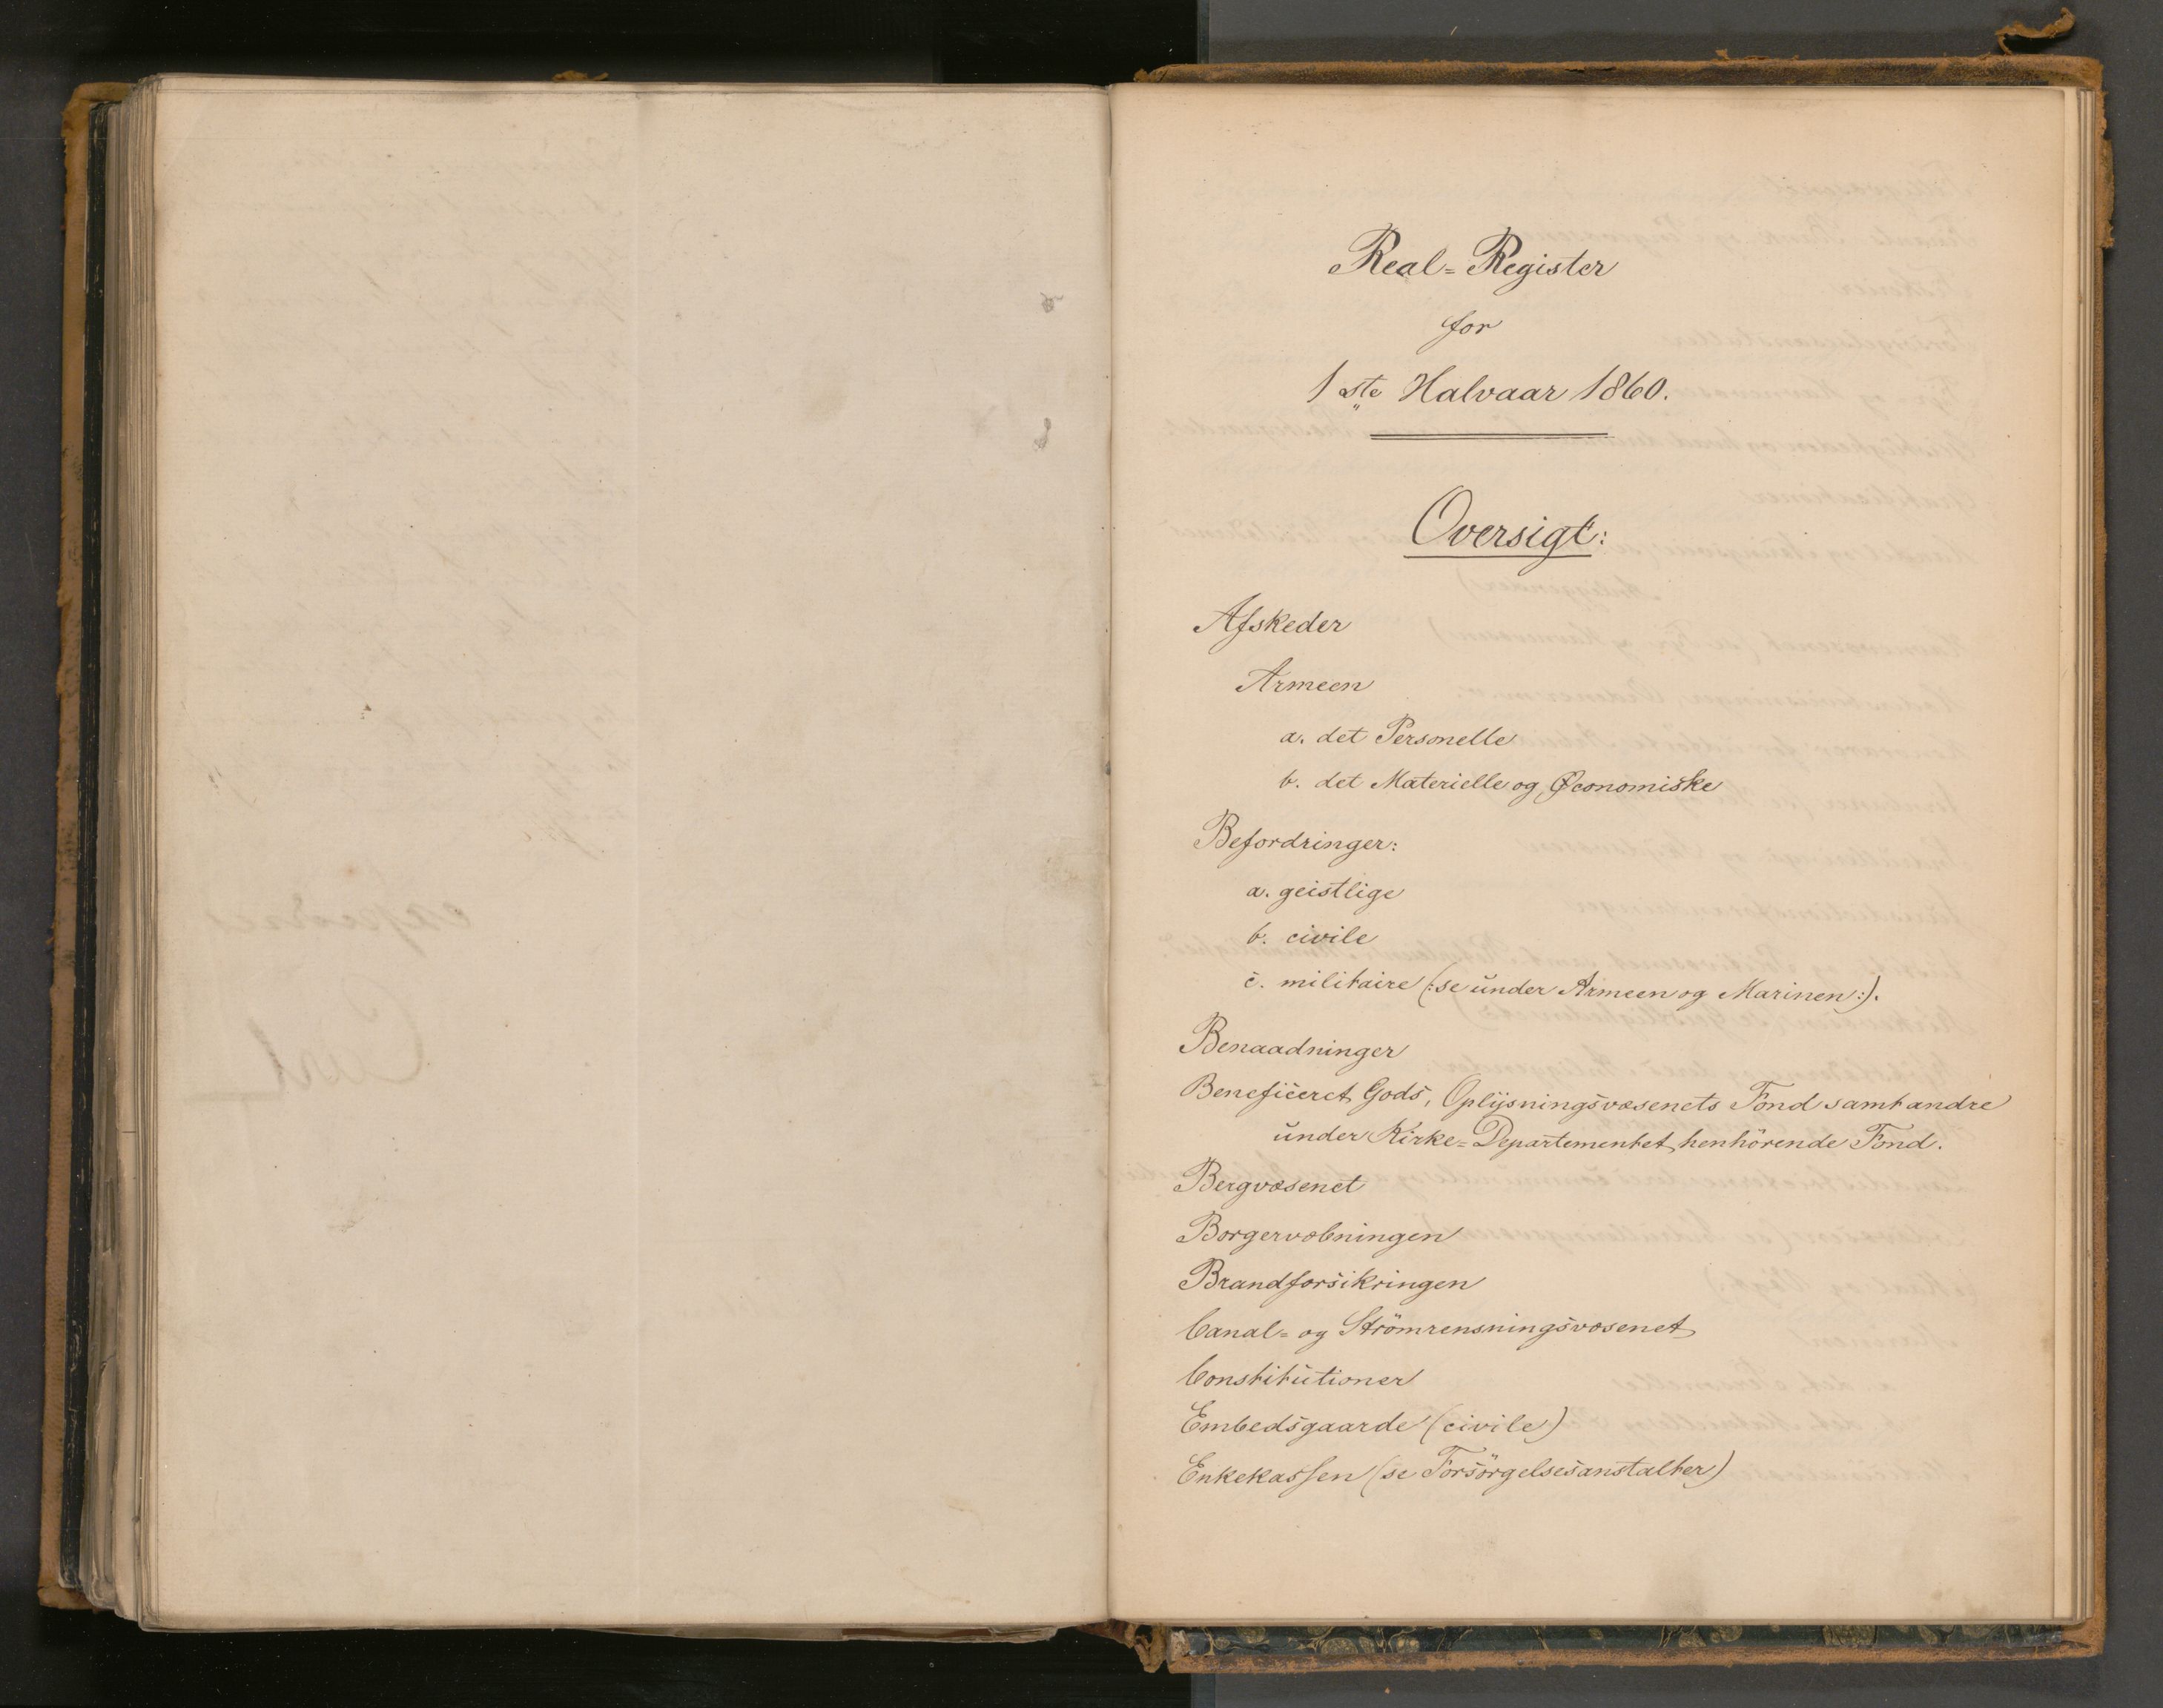 Real=Register
for
1ste Halvaar 1860.
Oversigt:
Afskeder
Armeen
a. det Personelle
b. det Materielle og Øconomiske
Befordringer:
a. geistlige
b. civile
c. militaire (:se under Armeen og Marinen:).
Benaadninger
Beneficeret Gods, Oplysningsvæsenets Fond samt andre
under Kirke=Departementet henhörende Fond.
Bergvæsenet
Borgervæbningen
Brandforsikringen
Canal= og Strömrensningsvæsenet
Constitutioner
Embedsgaarde (civile)
Enkekassen (se Forsörgelsesanstalter)